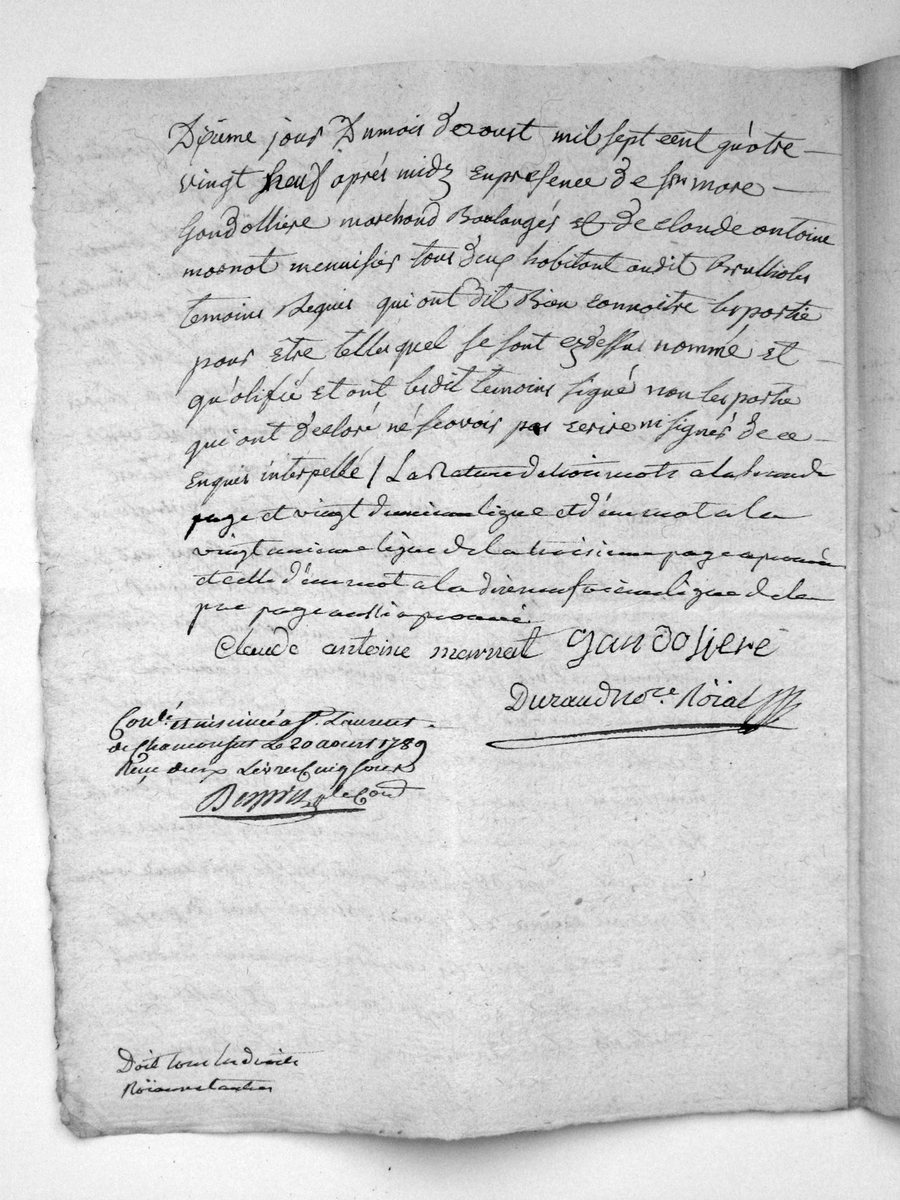 Dixième jour Dumois d'aoust mil sept cent quatre
vingt neuf après midy En presence de sr marc
Gandolliere marchand Boulanger et de claude antoine
mornot menuisier tous deux habitant audit Brullioles
temoins Requis qui ont dit Bien connoitre les partie
pour Etre telle quel se sont cy dessus nommé et
qualifié et ont lesdit temoins signé non les partie
qui ont declaré né scavoir pas ecrire ni signer de ce
Enquis interpellé / La Rature de trois mots a la seconde
page et vingt ligue et d'un mot a la
vingt unieme ligue de la troisieme page aprouvé
et celle d'un mot a la dixneufvieme ligue de la
pre page aussi aprouvé
claude antoine marnat gandoliere
Durand nore Roïal
Conle et insinué a St Laurent
de Chamousset Le 20 aoust 1789
Reçu deux Livres Cinq sous
Doit tous les droits